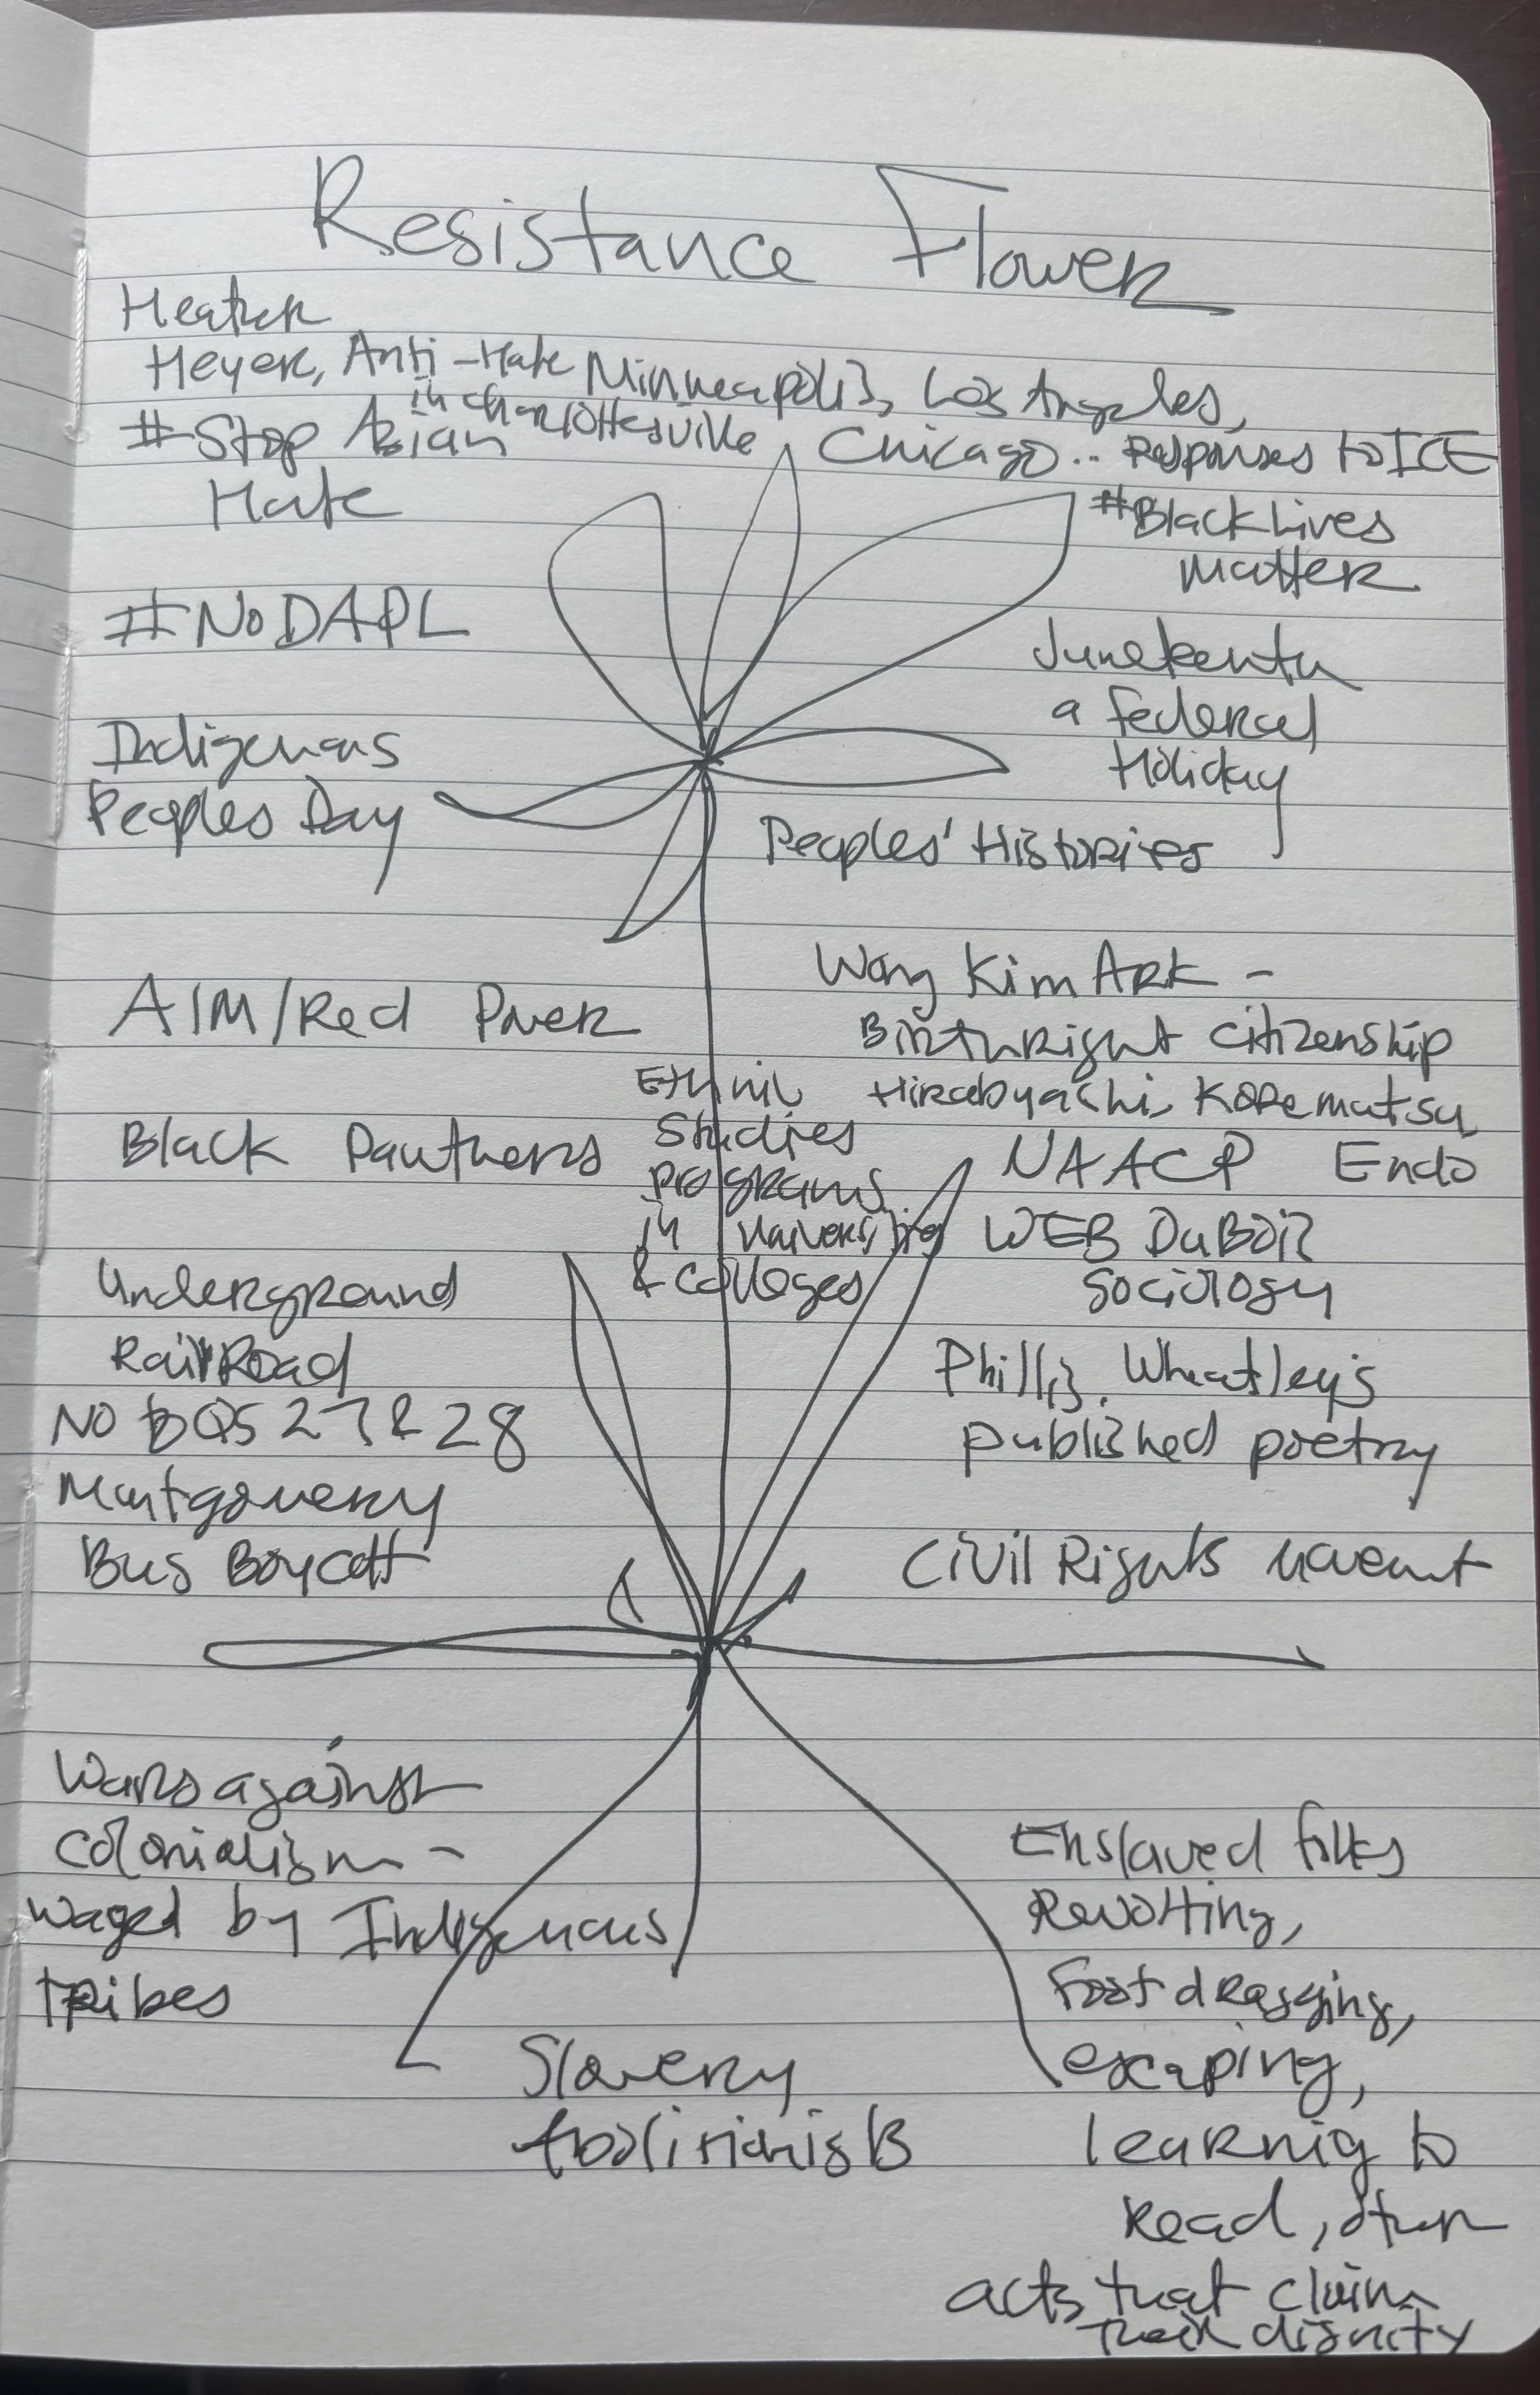 Resistance Flower
Heather
Heyer, Anti-Hate
in Charlottesville
Minneapolis, Los Angeles,
Chicago.. Responses to ICE
#Stop Asian
Hate
#BlackLives
Matter
#NoDAPL
Juneteenth
a Federal
Holiday
Indigenous
Peoples Day
Peoples' Histories
AIM/Red Power
Wong Kim Ark -
Birthright Citizenship
Hirabyashi, Korematsu,
Endo
Black Panthers
Ethnic
Studies
programs
in universities
& colleges
NAACP
WEB DuBois
Sociology
Underground
RailRoad
No BQs 27 & 28
Montgomery
Bus Boycott
Phillis Wheatley's
published poetry
Civil Rights Movemt
Wars against
colonialism -
waged by Indigenous
tribes
Slavery
Abolitionists
Enslaved folks
Revolting,
foot dragging,
escaping,
learning to
read, other
acts that claim
their dignity